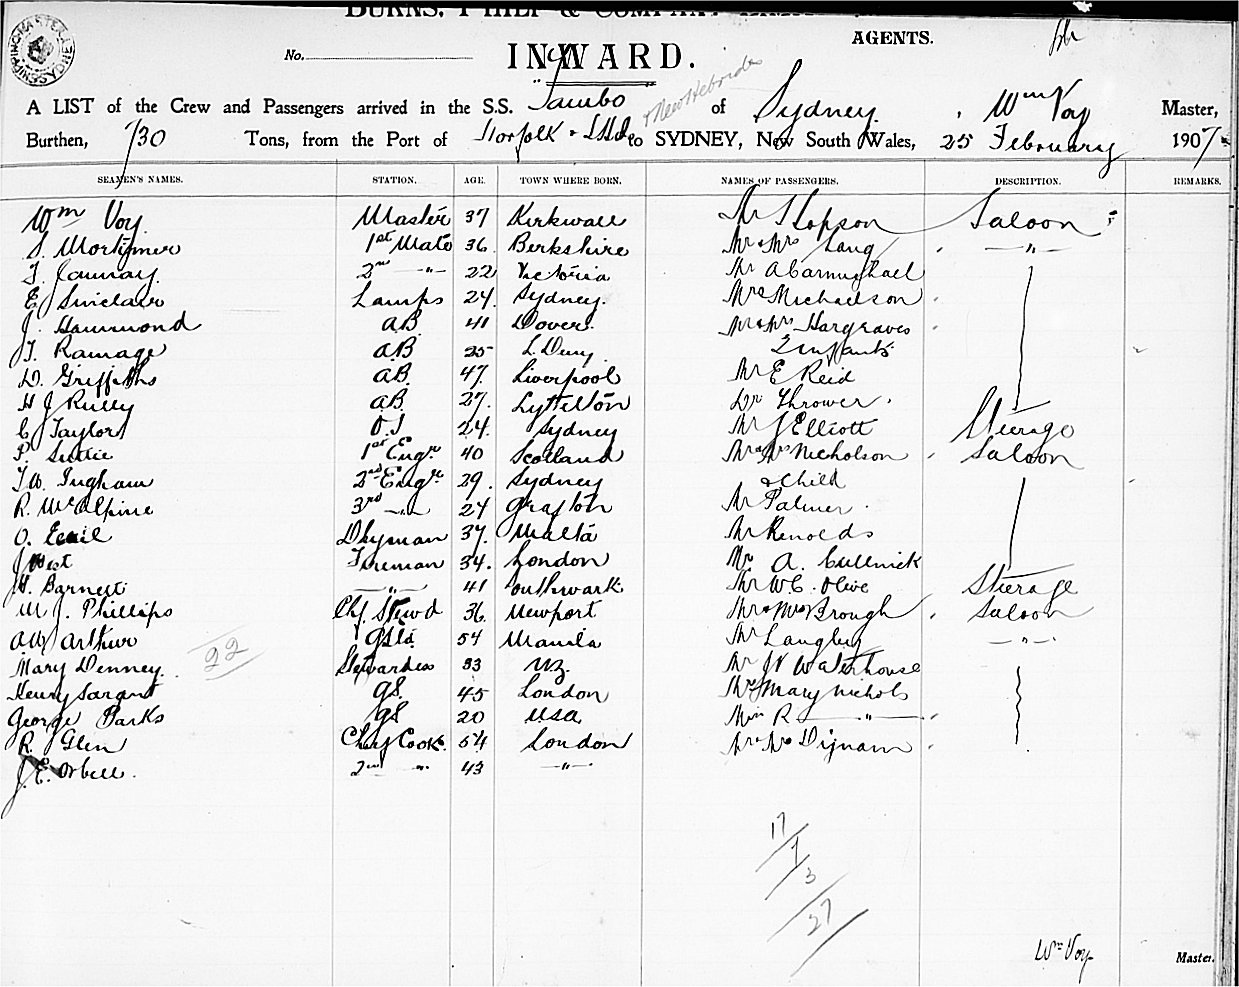 BURNS, PHILP & COMPANY
AGENTS.
No.
INWARD.
A LIST of the Crew and Passengers arrived in the S.S. "Tambo" of Sydney, Wm Voy Master,
+ New Hebrides
Burthen, 730 Tons, from the Port of Norfolk & to SYDNEY, New South Wales, 25 February 1907
SEAMEN'S NAMES. STATION. AGE. TOWN WHERE BORN. NAMES OF PASSENGERS. DESCRIPTION. REMARKS.
Wm Voy Master 37 Kirkwall Mr Hopson Saloon
S. Mortymer 1st Mate 36 Berkshire Mr & Mrs Lang "
T. Jannay 2nd " 22 Victoria Mr A Carmichael
E. Sinclair Lamps 24 Sydney Mrs Michaelson
J. Hammond AB 41 Dover Mr & Mrs Hargraves
T. Ramage AB 25 L. Derry 2 infants
D. Griffiths AB 47 Liverpool Mr E Reid
H J Rully AB 27 Lyttelton Dr Thrower
C Taylor O.S 24 Sydney Mr J Elliott Steerage
P. Suttie 1st Engr 40 Scotland Mr & Mrs Nicholson Saloon
T.W. Ingham 2nd Engr 29 Sydney & Child
R. McAlpine 3rd " 24 Grafton Mr Palmer
O. Dkyman 37 Malta Mr Renolds
J West Fireman 34 London Mr A. Cullnick
H. Barnett " 41 Southwark Mr W.C. Olive Steerage
M. J. Phillips Chf Stewd 36 Newport Mr & Mrs Brough Saloon
A.W. Arthur 54 Manila Mr Langley "
22
Mary Denney Stewardess 33 NZ. Mr W Waterhouse
Henry Sargent GS. 45 London Mrs Mary Nichols
George Parks GS 20 USA Miss R "
R. Glen Chief Cook 54 London Mr & Mrs Dignam
J. E. Orbell 2nd " 43 "
17
7
3
27
Wm Voy Master.